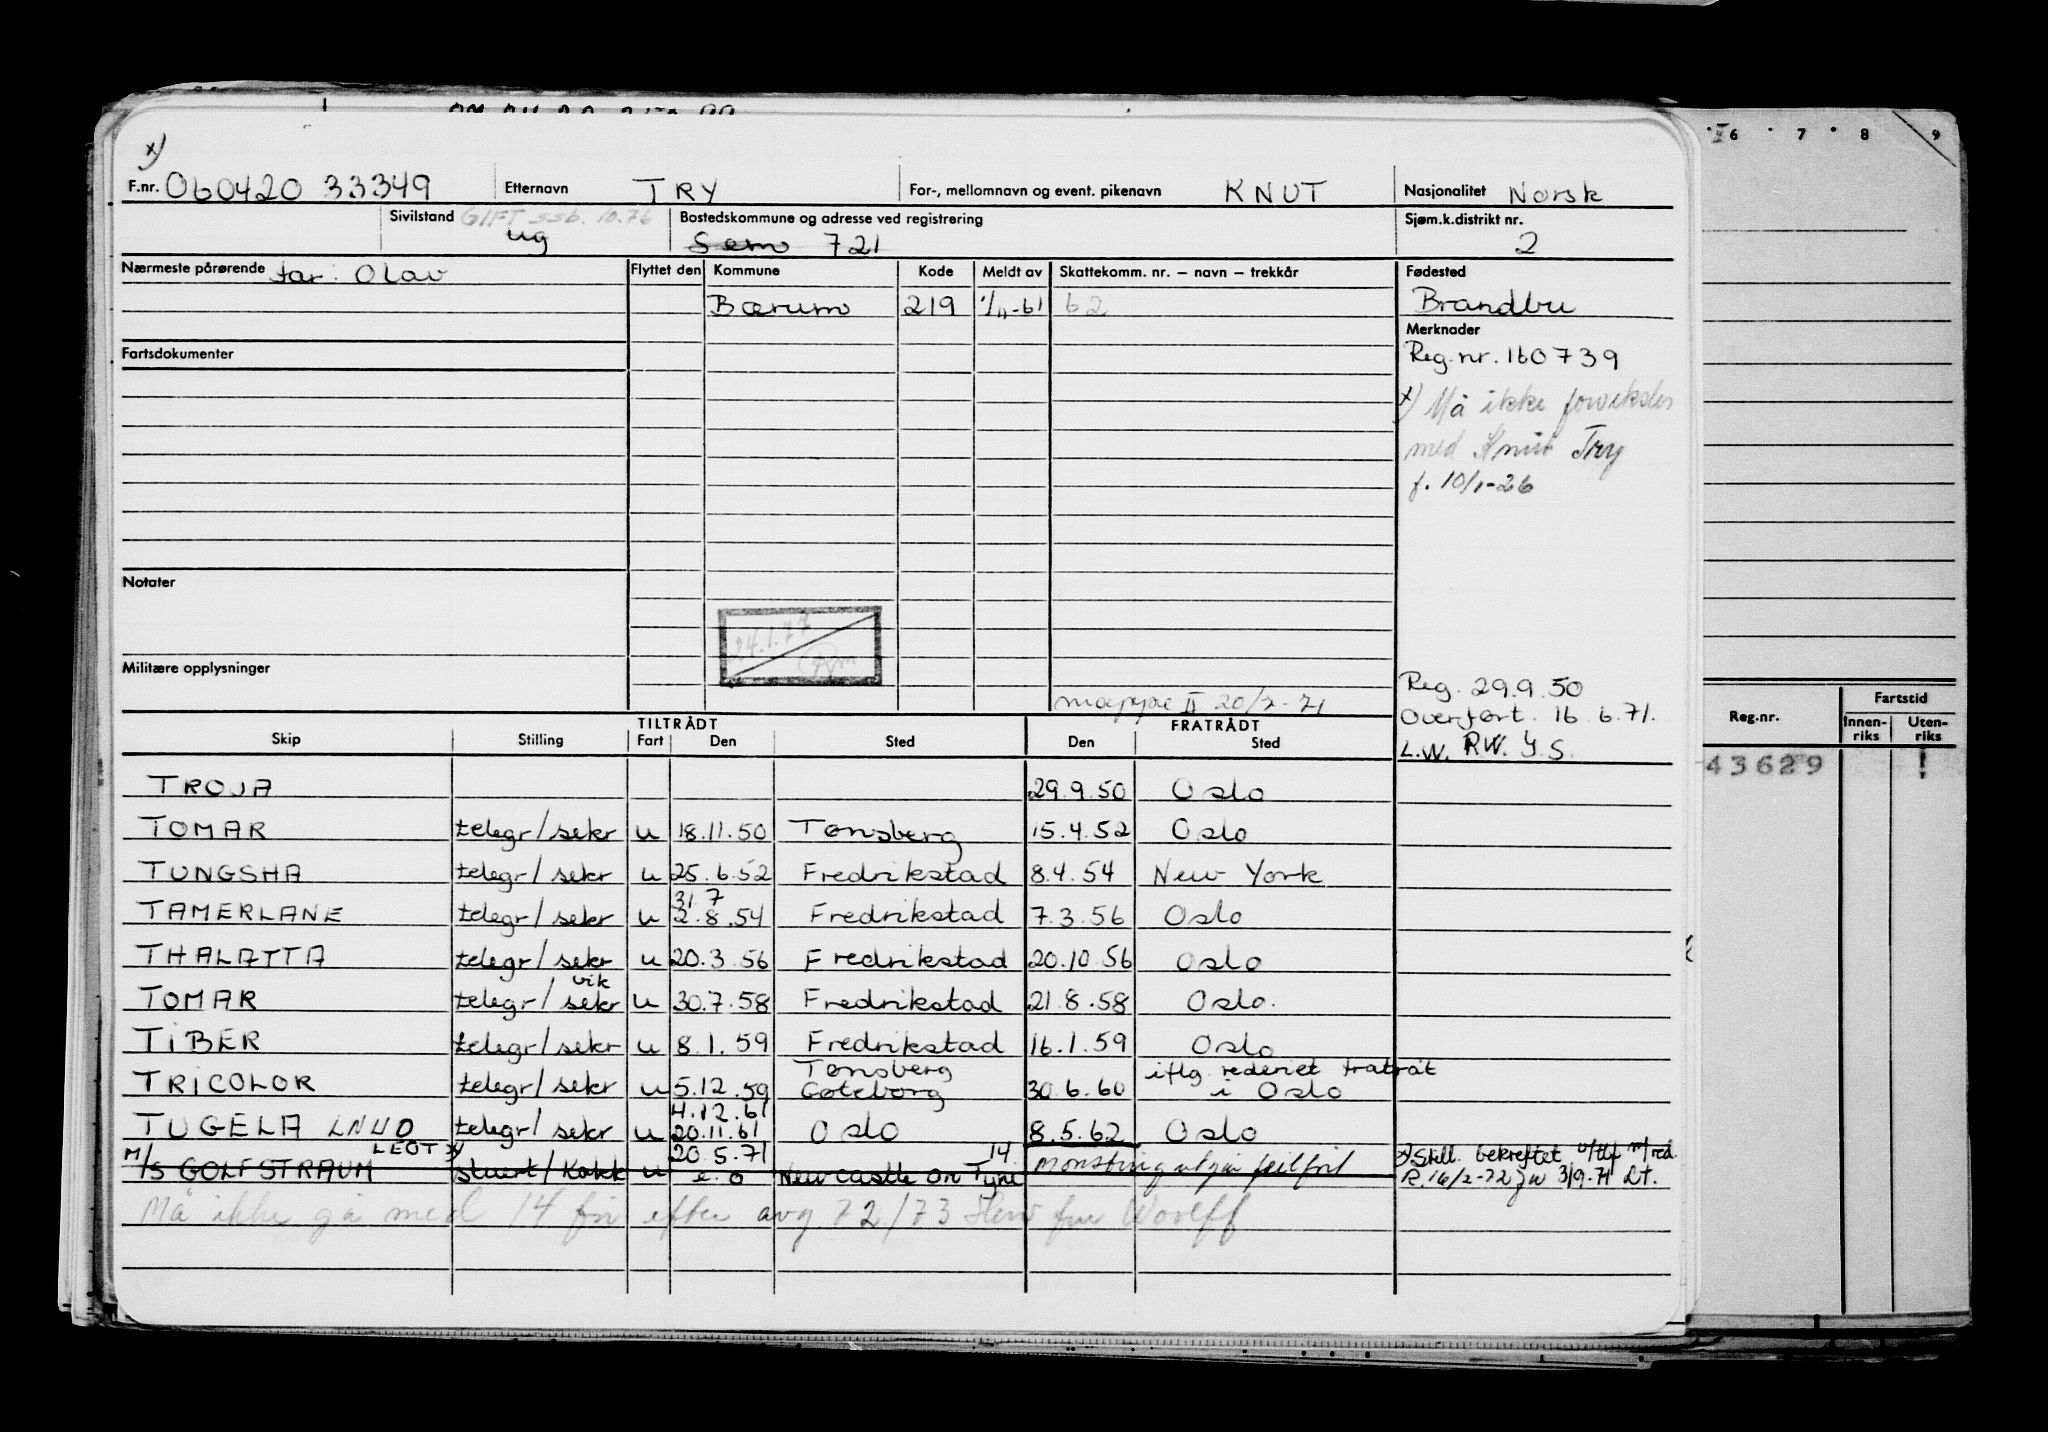 6 7 8 9
x)
F.nr. 060420 33349 Etternavn TRY For-, mellomnavn og event. pikenavn KNUT Nasjonalitet Norsk
Sivilstand GIFT SSB. 10.76 ug Bostedskommune og adresse ved registrering Sem 721 Sjøm.k.distrikt nr. 2
Nærmeste pårørende far: Olav Flyttet den Kommune Kode Meldt av Skattekomm. nr. – navn – trekkår Fødested
Bærum 219 1/11-61 62 Brandbu
Merknader
Fartsdokumenter Reg.nr. 160739
x) Må ikke forveksles
med Knut Try
f. 10/1-26
Notater
24.1.77
Militære opplysninger
Reg. 29.9.50
mappe II 20/7-71
Overført. 16.6.71.
L.W. RW. Y.S.
TILTRÅDT FRATRÅDT
Skip Stilling Fart Den Sted Den Sted
Reg.nr. Fartstid
Innen-riks Uten-riks
43629
TROJA 29.9.50 Oslo
TOMAR telegr/sekr u 18.11.50 Tønsberg 15.4.52 Oslo
TUNGSHA telegr/sekr u 25.6.52 Fredrikstad 8.4.54 New York
31 7
TAMERLANE telegr/sekr u 2.8.54 Fredrikstad 7.3.56 Oslo
THALATTA telegr/sekr u 20.3.56 Fredrikstad 20.10.56 Oslo
vik
TOMAR telegr/sekr u 30.7.58 Fredrikstad 21.8.58 Oslo.
TIBER telegr/sekr u 8.1.59 Fredrikstad 16.1.59 Oslo
Tønsberg iflg. rederiet fratråt
TRICOLOR telegr/sekr u 5.12.59 Göteborg 30.6.60 i Oslo
4.12.61
TUGELA LNUO telegr/sekr u 20.11.61 Oslo 8.5.62 Oslo
LEOT x) 20.5.71 14
M/S GOLFSTRAUM stuert/Kokk u e.o Newcastle on Tyne Mønstring utgår feilfrit
x) Still. bekreftet o/tlf m/red.
R. 16/2-72 3/9-71 Lt.
Må ikke gå med 14 før efter avg 72/73